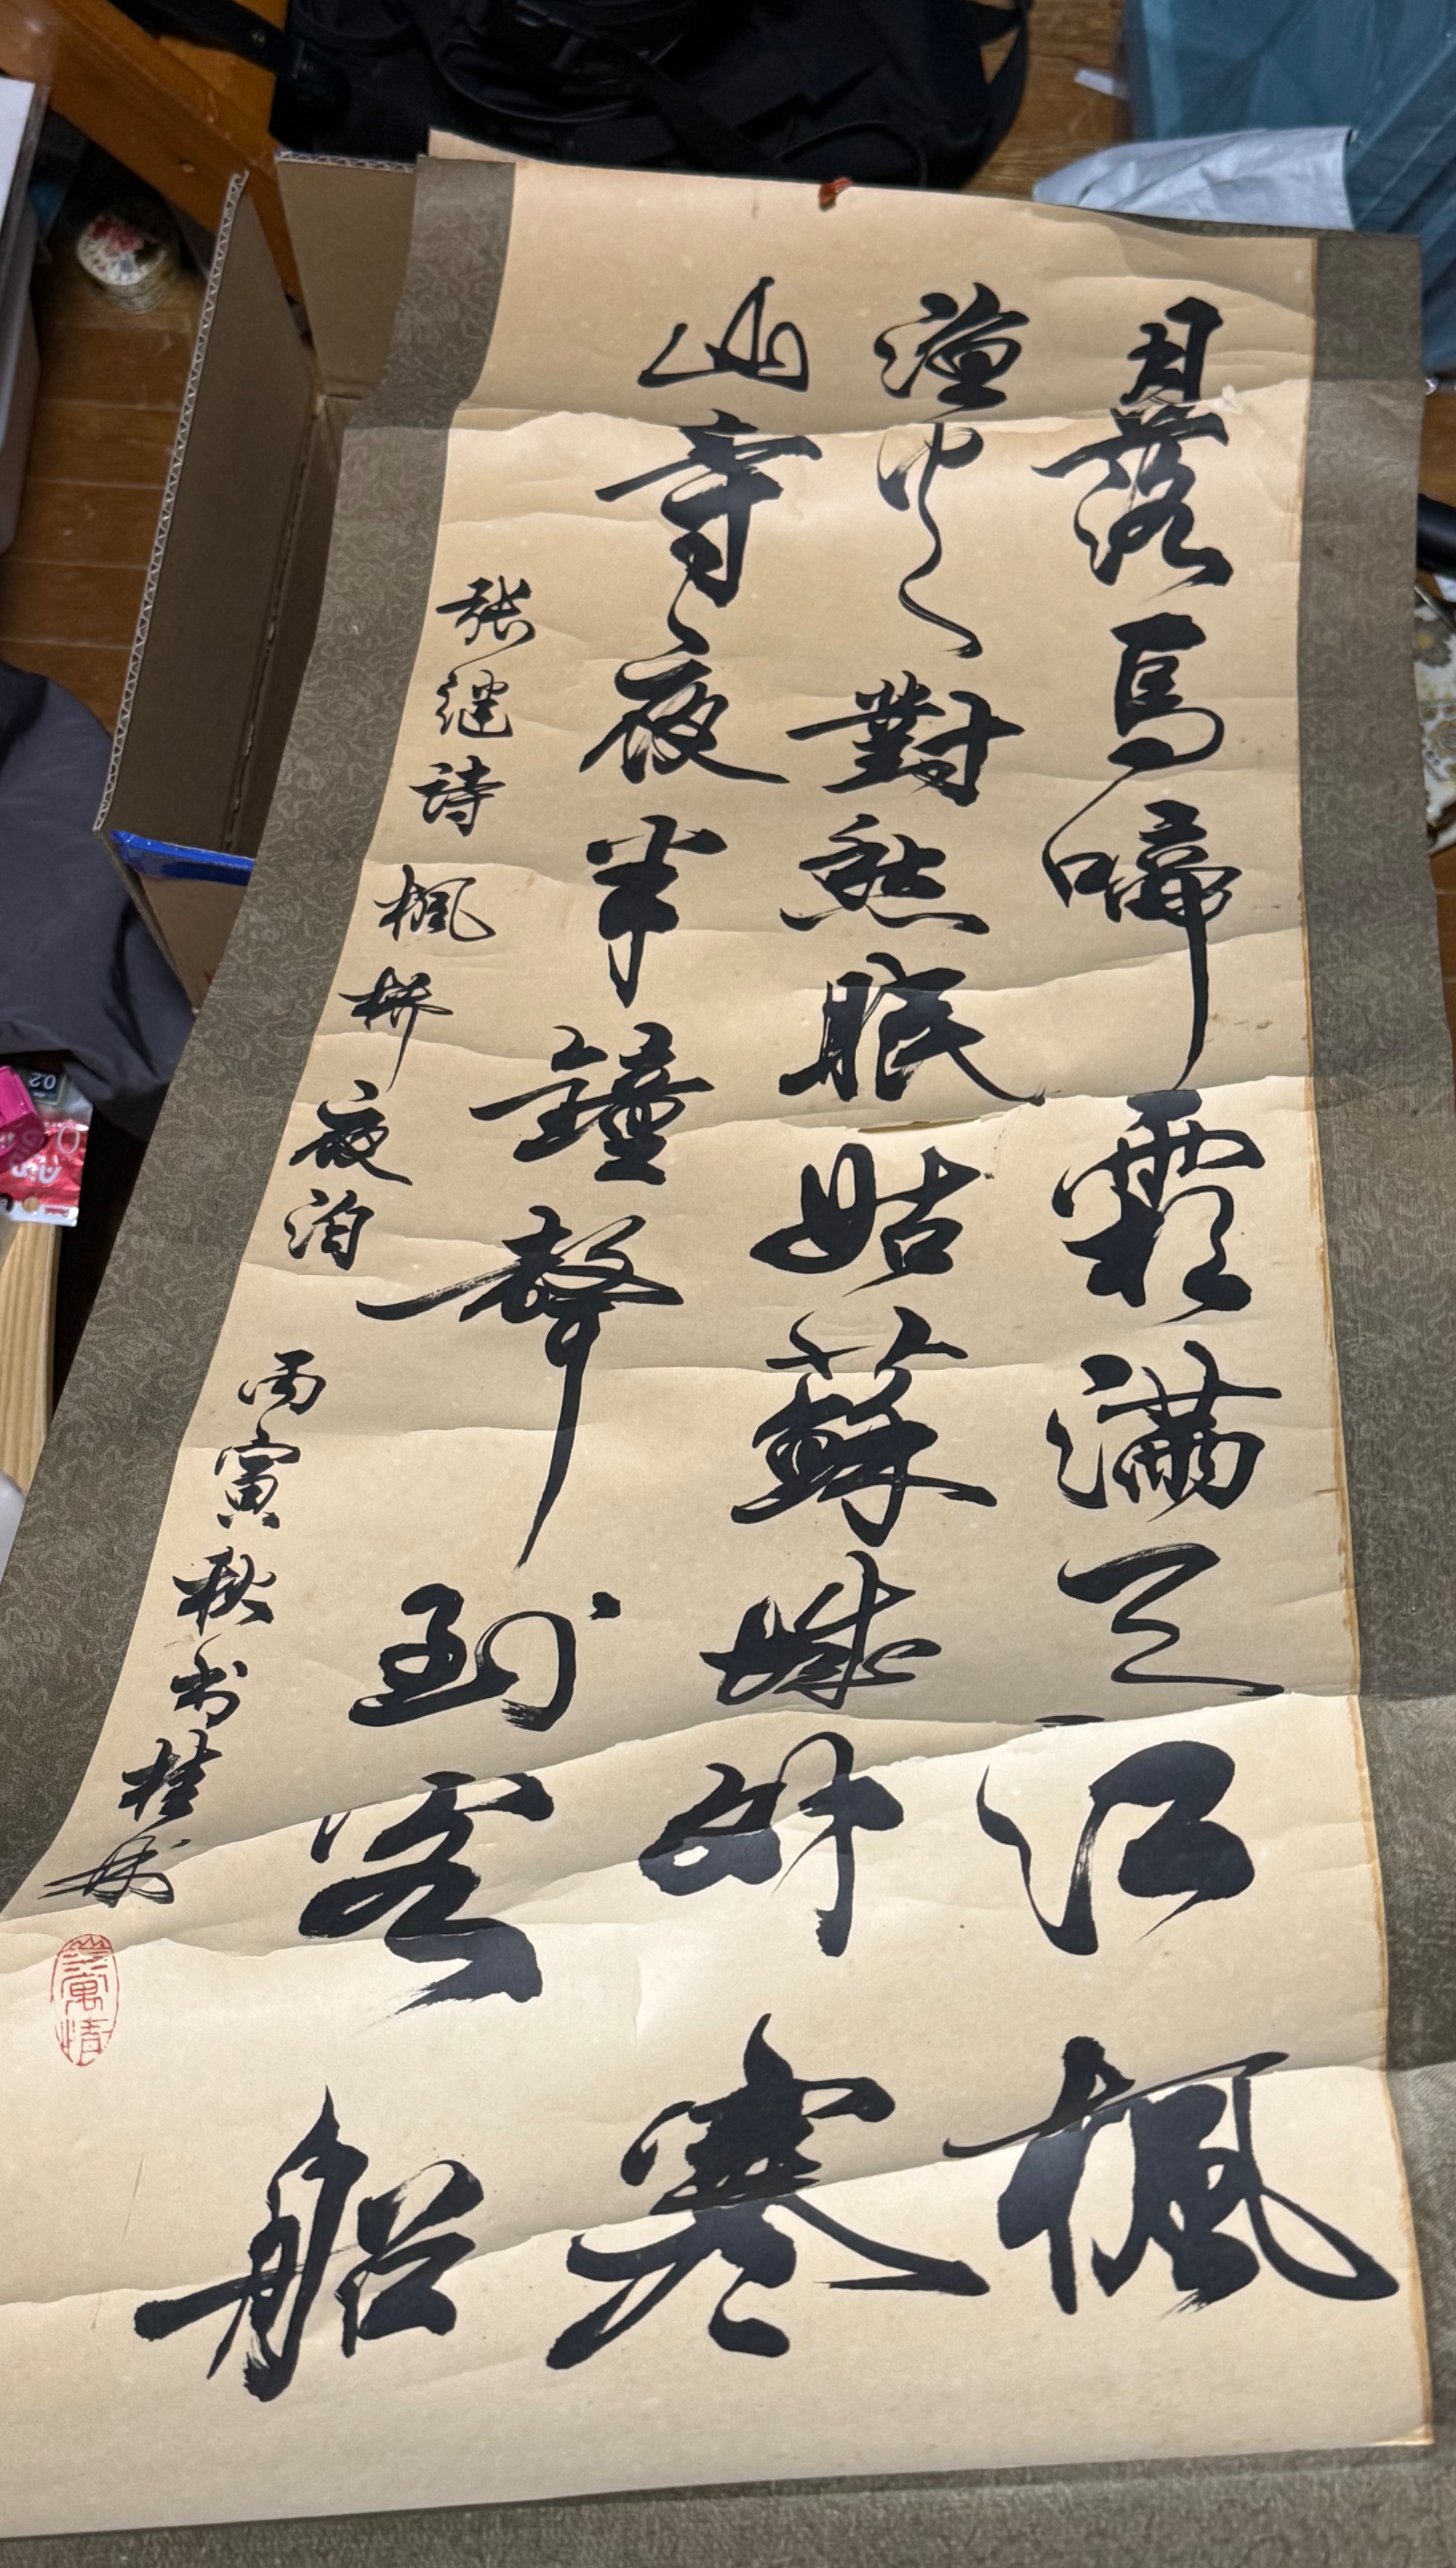 月落烏啼霜滿天江楓
漁火對愁眠姑蘇城外寒
山寺夜半鐘聲到客船
张继詩楓桥夜泊
丙寅秋书桂
02